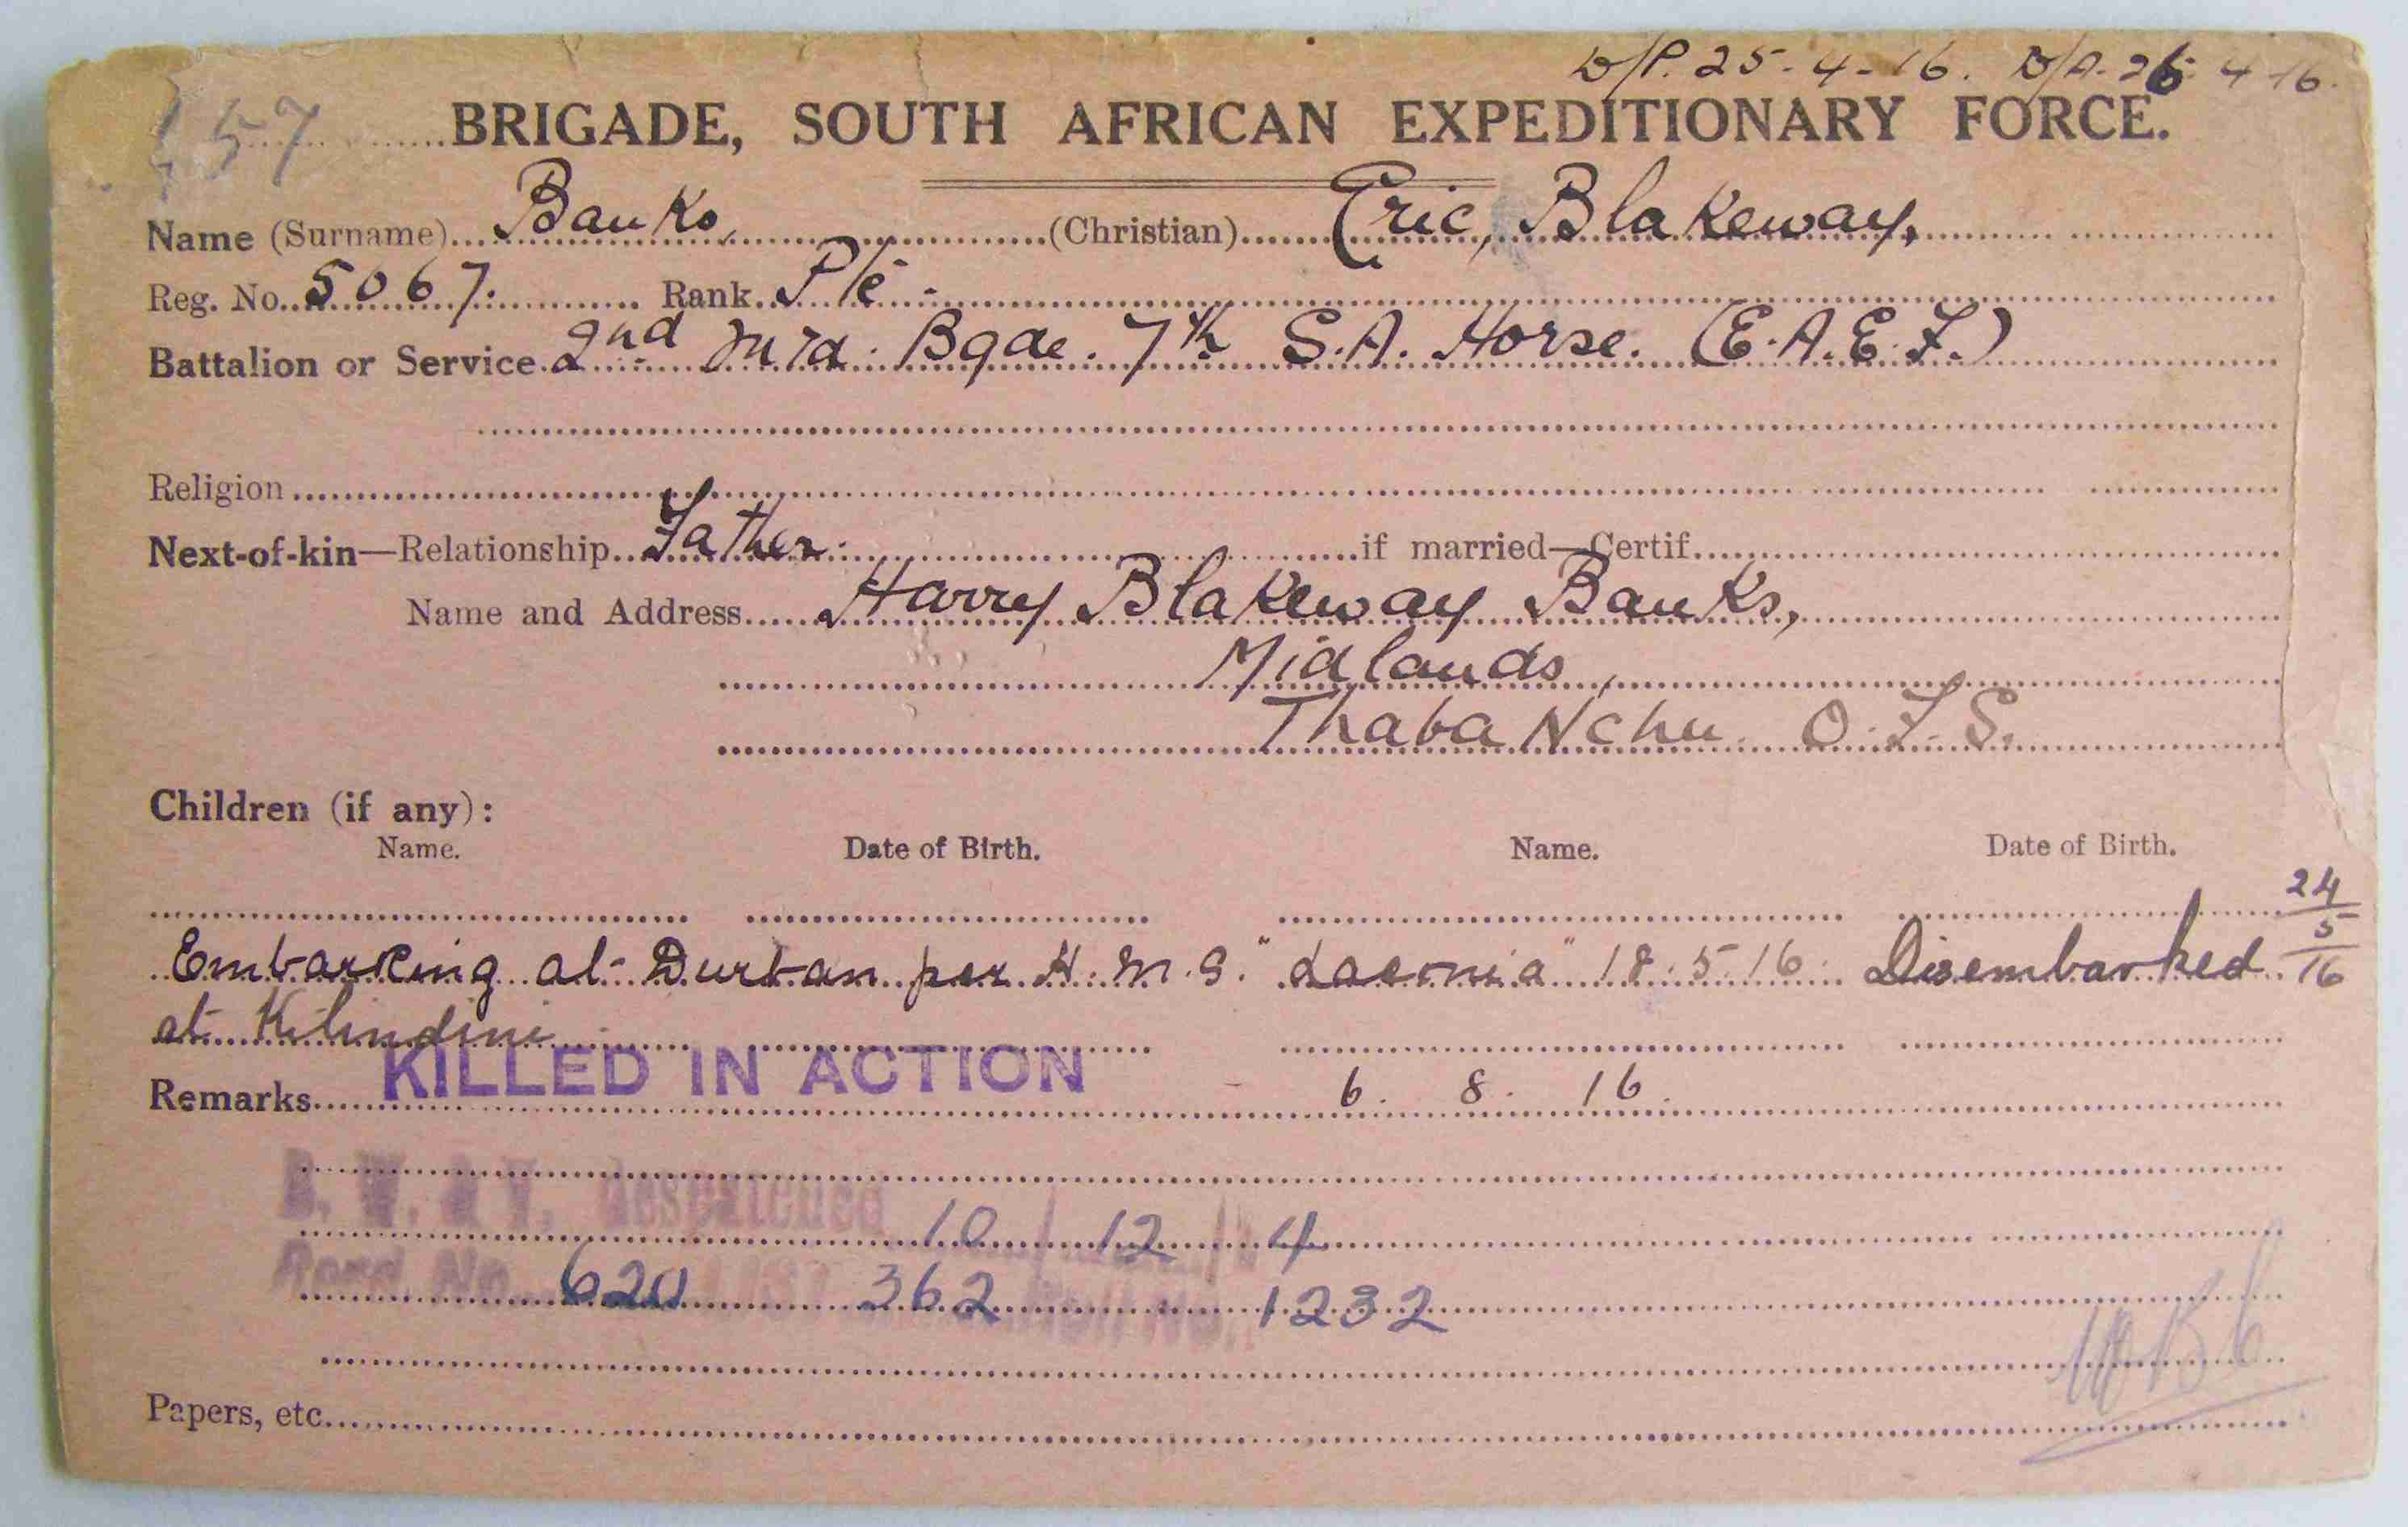 D/P. 25-4-16. D/A. 26 4 16.
57 BRIGADE, SOUTH AFRICAN EXPEDITIONARY FORCE.
Name (Surname) Banks, (Christian) Eric, Blakeway,
Reg. No. 5067. Rank Pte.
Battalion or Service 2nd Mtd. Bgde. 7th S.A. Horse. (E.A.E.F.)
Religion
Next-of-kin—Relationship Father. if married—Certif.
Name and Address Harry Blakeway Banks,
Midlands,
Thaba Nchu. O.F.S.
Children (if any):
Name. Date of Birth. Name. Date of Birth.
Embarking at Durban per H.M.S. "Laconia" 18.5.16. Disembarked 24/5/16
at Kilindini
Remarks KILLED IN ACTION 6. 8. 16.
B. W. & V. Despatched 10/12/4
Record No. 620 LIST 362 Roll No. 1232
Papers, etc.